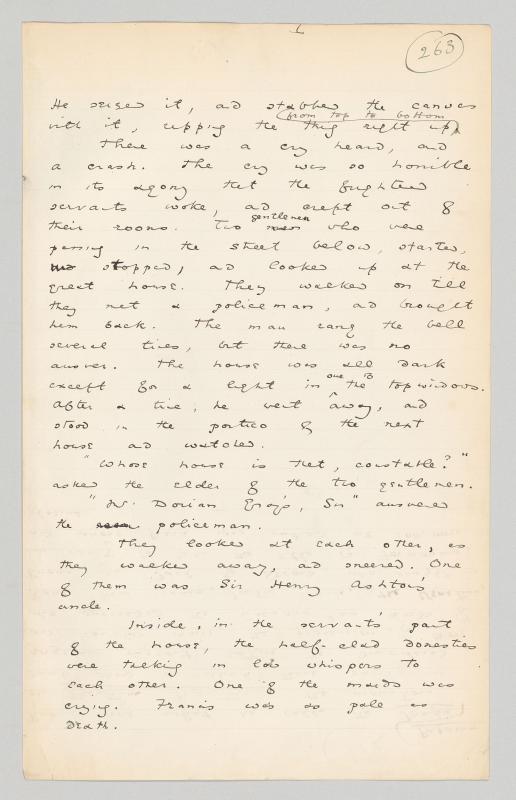 263
He seized it, and stabbed the canvas
from top to bottom
with it, ripping the thing right up.
There was a cry heard, and
a crash. The cry was so horrible
in its agony that the frightened
servants woke, and crept out of
gentlemen
their rooms. Two men who were
passing in the street below, started,
and stopped, and looked up at the
great house. They walked on till
they met a policeman, and brought
him back. The man rang the bell
several times, but there was no
answer. The house was all dark
except for a light in one of the top windows.
After a time, he went away, and
stood in the portico of the next
house and watched.
"Whose house is that, constable?"
asked the elder of the two gentlemen.
"Mr. Dorian Gray's, Sir" answered
the policeman.
They looked at each other, as
they walked away, and sneered. One
of them was Sir Henry Ashton's
uncle.
Inside, in the servants' part
of the house, the half-clad domestics
were talking in low whispers to
each other. One of the maids was
crying. Francis was as pale as
death.